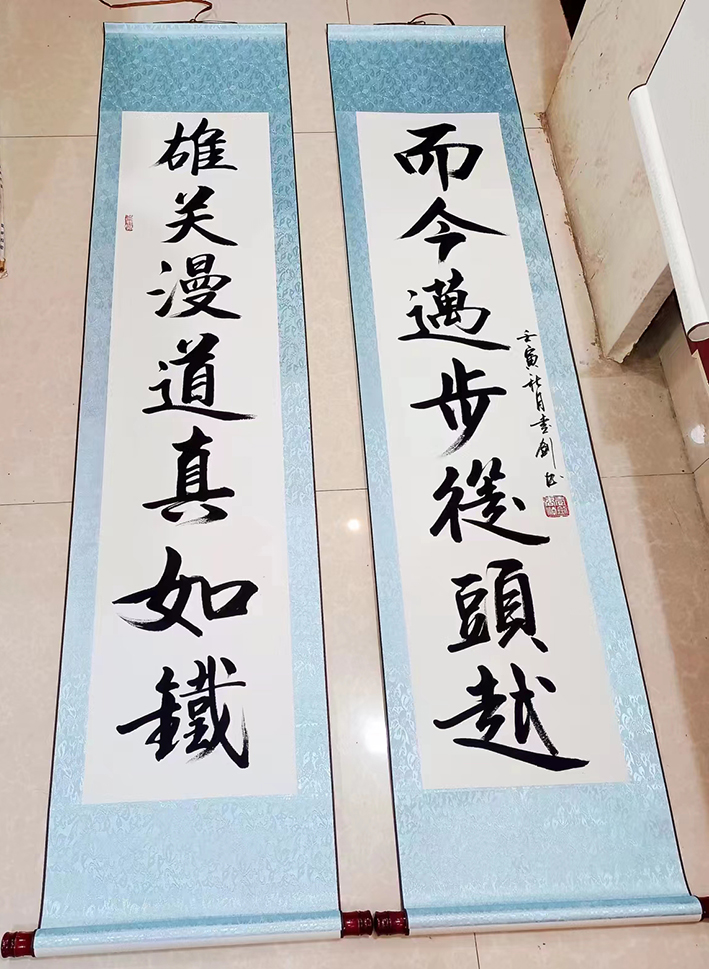 雄关漫道真如鐵
而今邁步從頭越
壬寅秋月书劍书